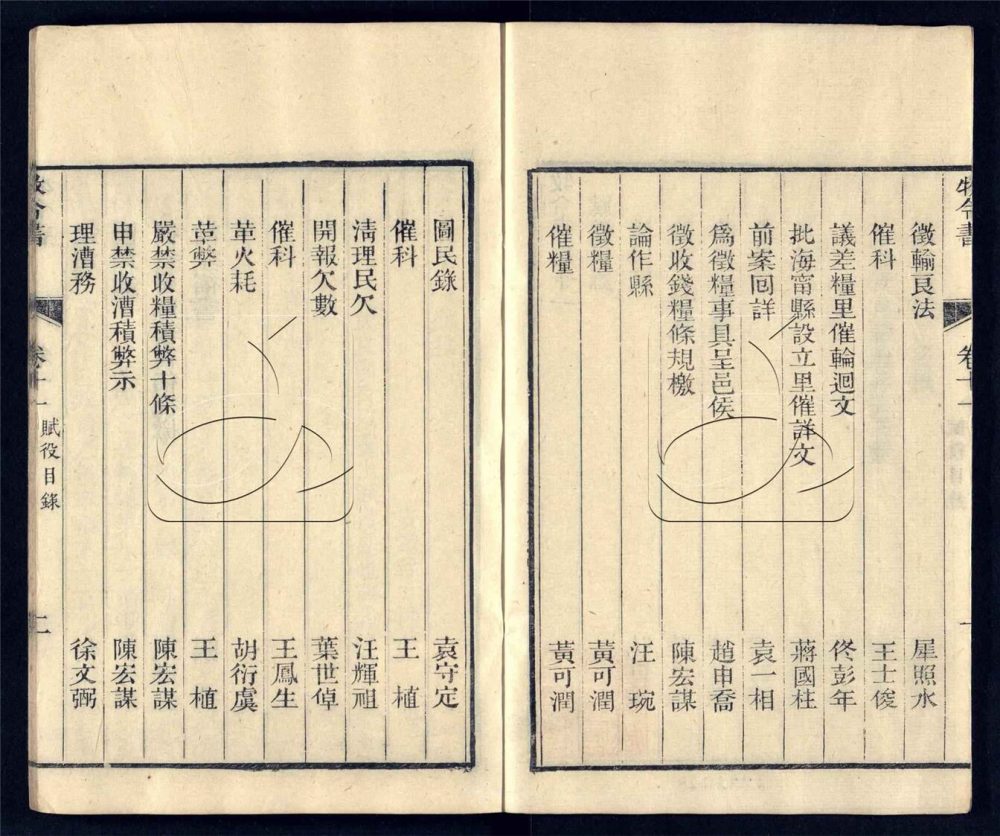 牧令書 卷十一 一
徵輸良法 犀照水
催科 王士俊
議差糧里催輪迴文 佟彭年
批海甯縣設立里催詳文 蔣國柱
前案回詳 袁一相
爲徵糧事具呈邑侯 趙申喬
徵收錢糧條規檄 陳宏謀
論作縣 汪琬
徵糧 黃可潤
催糧 黃可潤
圖民錄 袁守定
催科 王植
清理民欠 汪輝祖
開報欠數 葉世倬
催科 王鳳生
革火耗 胡衍虞
革弊 王植
嚴禁收糧積弊十條 陳宏謀
申禁收漕積弊示 陳宏謀
理漕務 徐文弼
牧令書 卷十一 賦役目錄 二